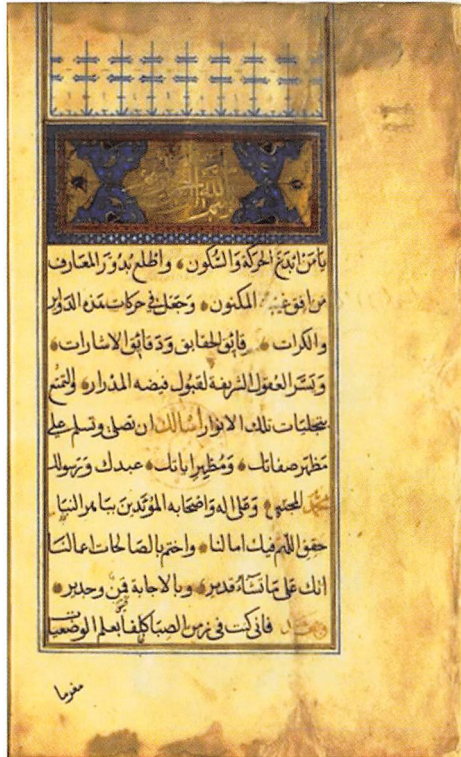 بسم الله الرحمن الرحيم
يا من ابدع الحركة والسكون وأطلع بدور المعارف
من افق غيبه المكنون وجعل في حركات هذه الدواير
والكرات قايق الحقايق ودقايق الاشارات
ويسر العقول الشريفة لقبول فيضه المدرار والتمتع
بتجليات تلك الانوار أسألك ان تصلي وتسلم على
مظهر صفاتك ومظهر اياتك عبدك ورسولك
محمد المجتبى وعلى اله واصحابه المؤيدين
حقق اللهم فيك امالنا واختم بالصالحات اعمالنا
انك على ما تشاء قدير وبالاجابة قمن وجدير
وبعد فاني كنت في زمن الصبا كلفا بعلم الوضعيات
مغرما